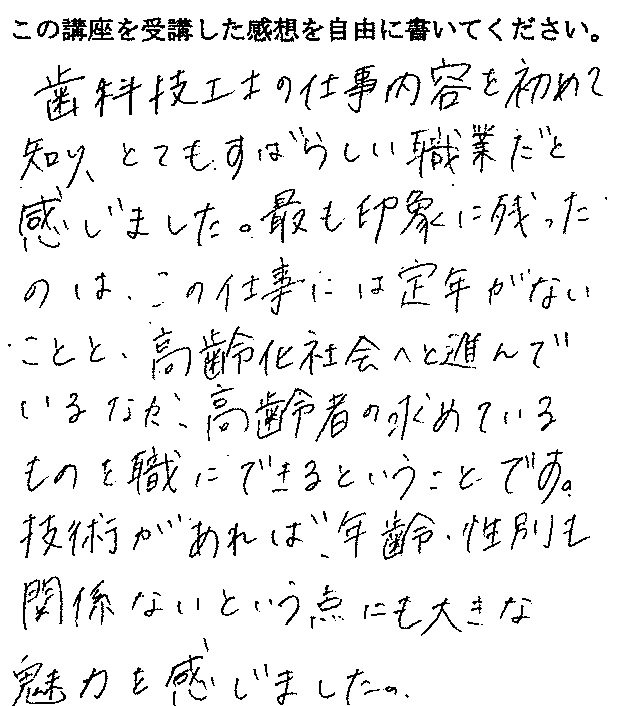 この講座を受講した感想を自由に書いてください。
歯科技工士の仕事内容を初めて
知り、とてもすばらしい職業だと
感じました。最も印象に残った
のは、この仕事には定年がない
ことと、高齢化社会へと進んで
いるなか、高齢者の求めている
ものを職にできるということです。
技術があれば、年齢・性別も
関係ないという点にも大きな
魅力を感じました。